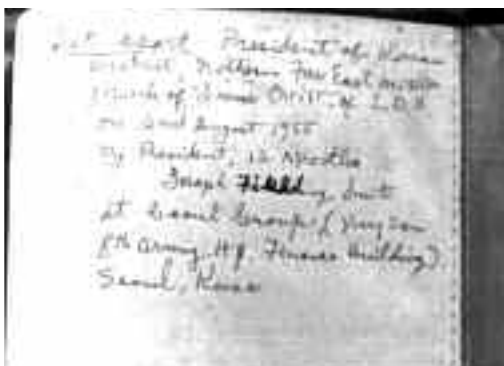 Set apart President of Korean
District, Northern Far East Mission
Church of Jesus Christ of L.D.S
on 2nd August 1955
by President, 12 Apostles
Joseph Fielding Smith
at Seoul Group (
8th Army Hq. Finance Building).
Seoul, Korea